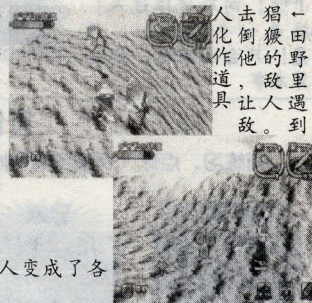 ←田野里遇到
猖獗的敌人。
击倒他，让敌
人化作道具
人变成了各